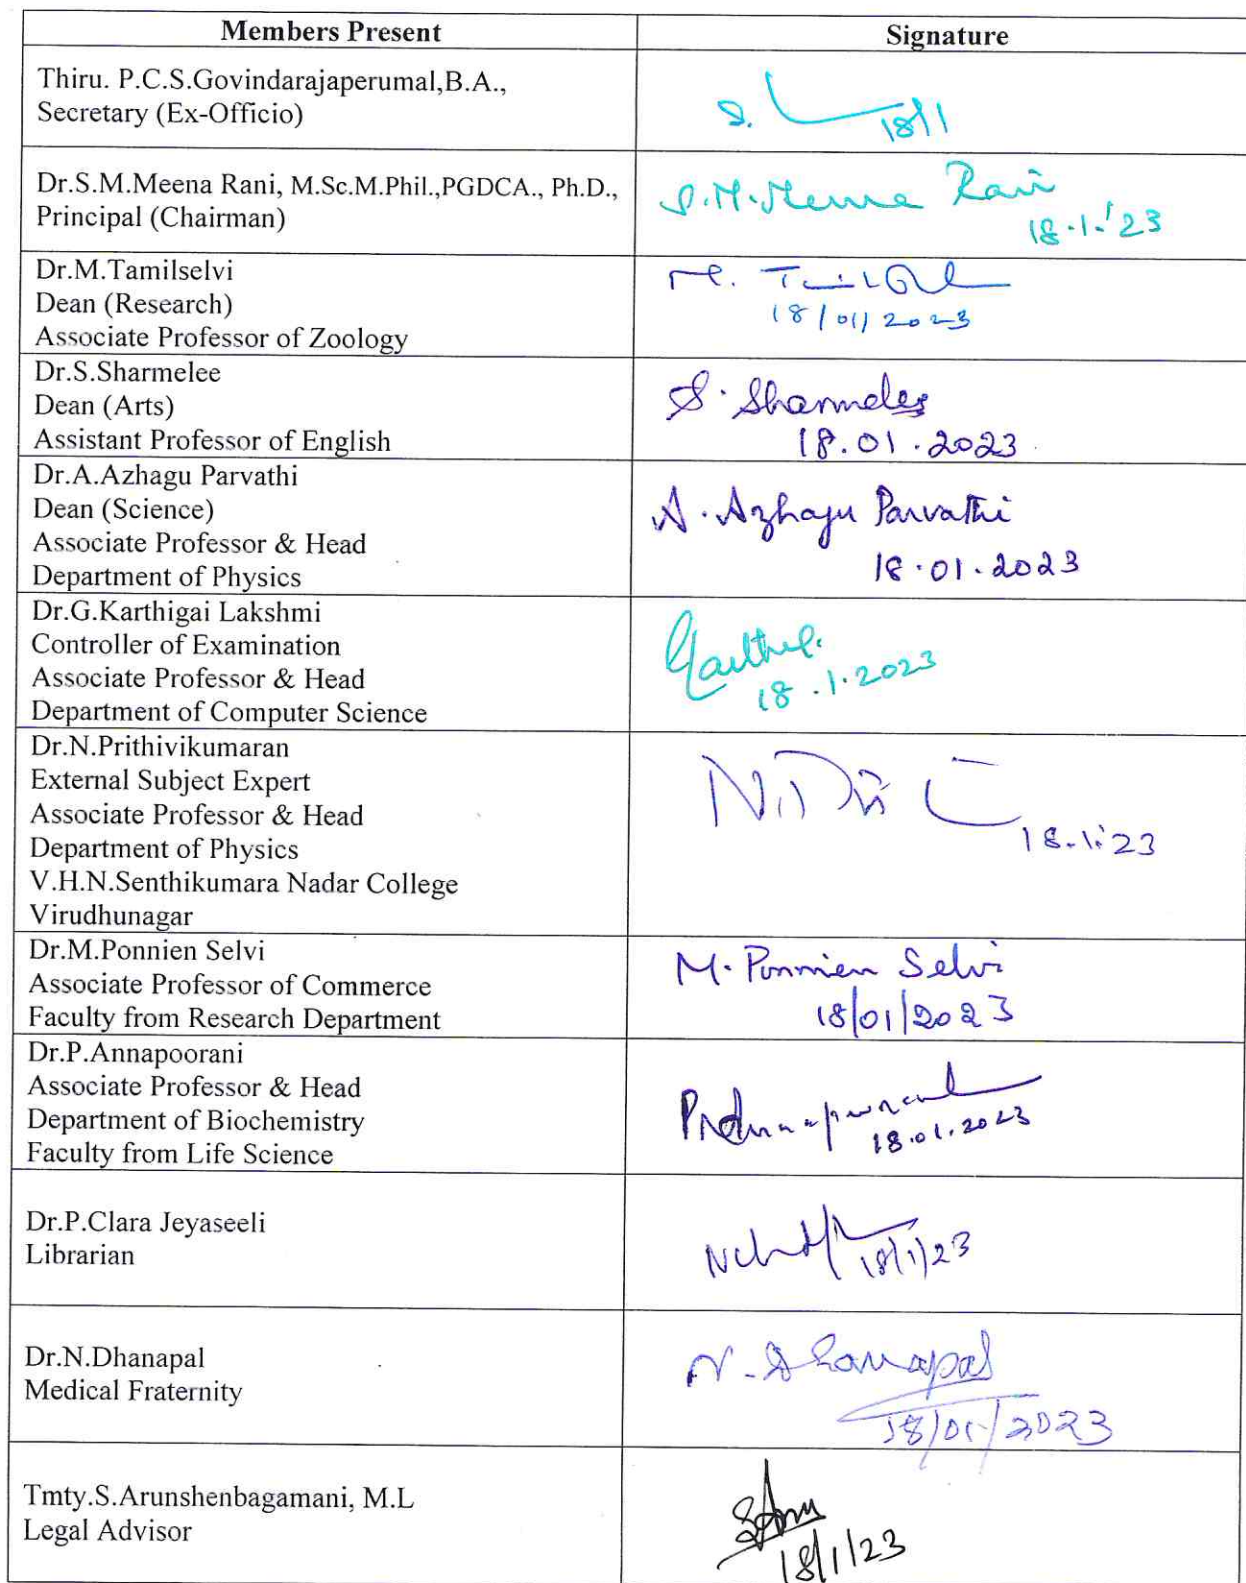 Members Present
Signature
Thiru. P.C.S.Govindarajaperumal,B.A.,
Secretary (Ex-Officio)
S.
18/1
Dr.S.M.Meena Rani, M.Sc.M.Phil.,PGDCA., Ph.D.,
Principal (Chairman)
S.M.Meena Rani
18.1.'23
Dr.M.Tamilselvi
Dean (Research)
Associate Professor of Zoology
M.
18/01/2023
Dr.S.Sharmelee
Dean (Arts)
Assistant Professor of English
S. Sharmelee
18.01.2023
Dr.A.Azhagu Parvathi
Dean (Science)
Associate Professor & Head
Department of Physics
A. Azhagu Parvathi
18.01.2023
Dr.G.Karthigai Lakshmi
Controller of Examination
Associate Professor & Head
Department of Computer Science
18.1.2023
Dr.N.Prithivikumaran
External Subject Expert
Associate Professor & Head
Department of Physics
V.H.N.Senthikumara Nadar College
Virudhunagar
18.1.'23
Dr.M.Ponnien Selvi
Associate Professor of Commerce
Faculty from Research Department
M. Ponnien Selvi
18/01/2023
Dr.P.Annapoorani
Associate Professor & Head
Department of Biochemistry
Faculty from Life Science
18.01.2023
Dr.P.Clara Jeyaseeli
Librarian
18/1/23
Dr.N.Dhanapal
Medical Fraternity
N. Dhanapal
18/01/2023
Tmty.S.Arunshenbagamani, M.L
Legal Advisor
18/1/23